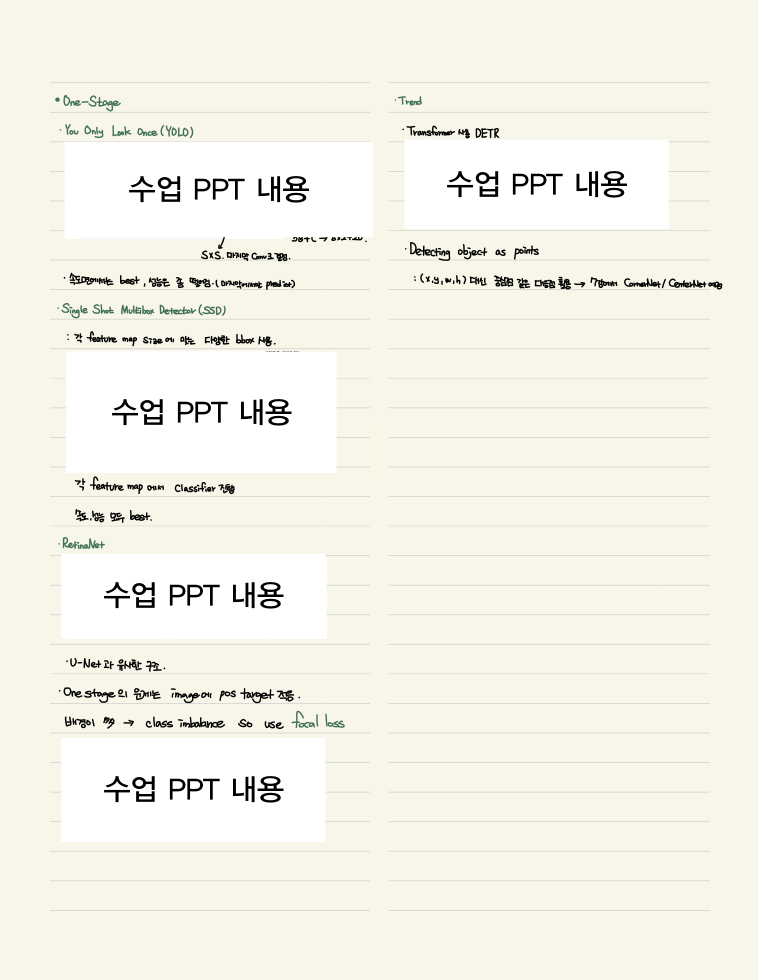 • One-Stage
· You Only Look Once (YOLO)
수업 PPT 내용
S×S. 마지막 Conv 3. 결정.
· 속도면에서는 best, 성능은 좀 떨어짐. (마지막에서만 predict)
· Single Shot Multibox Detector (SSD)
: 각 feature map size에 맞는 다양한 bbox 사용.
수업 PPT 내용
각 feature map에서 Classifier 진행
속도, 성능 모두 best.
· RetinaNet
수업 PPT 내용
· U-Net과 유사한 구조.
· One stage의 문제는 image에 pos target 적음.
배경이 多 → class imbalance so use focal loss
수업 PPT 내용
· Trend
· Transformer 사용 DETR
수업 PPT 내용
· Detecting object as points
: (x, y, w, h) 대신 중심점 같은 대응점 활용 → 7강에서 CornerNet / CenterNet